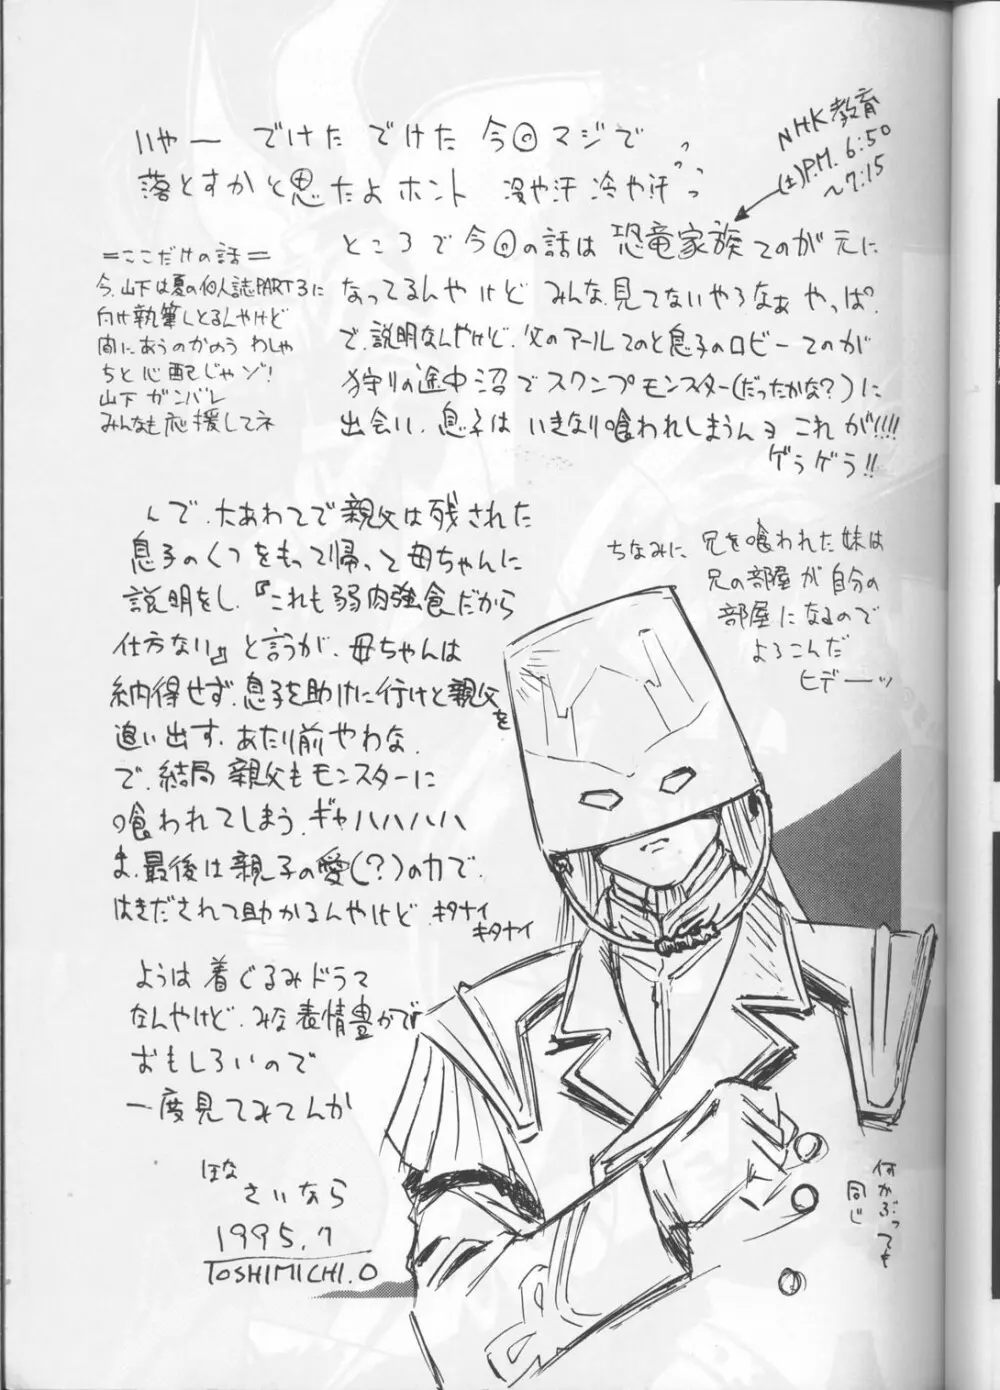 いやー でけた でけた 今回マジで
落とすかと思たよホント 冷や汗 冷や汗
NHK教育
(土)P.M. 6:50
〜7:15
ところで今回の話は 恐竜家族てのが元に
なってるんやけど みんな見てないやろなぁ やっぱ。
で、説明なんやけど、父のアールてのと息子のロビーてのが
狩りの途中沼でスワンプモンスター(だったかな?)に
出会い、息子は いきなり喰われしまうんヨ これが!!!!
ゲラゲラ!!
=ここだけの話=
今、山下は夏の個人誌PART3に
向け執筆しとるんやけど
間にあうのかのう わしゃ
ちと心配じゃゾ!
山下 ガンバレ
みんなも応援してネ
んで、大あわてで親父は残された
息子のくつをもって帰って母ちゃんに
説明をし、『これも弱肉強食だから
仕方ない』と言うが、母ちゃんは
納得せず、息子を助けに行けと親父を
追い出す、あたり前やわな、
で、結局 親父もモンスターに
喰われてしまう、ギャハハハハ
ま、最後は親子の愛(?)の力で、
はきだされて助かるんやけど キタナイ
キタナイ
ちなみに 兄を喰われた妹は
兄の部屋が自分の
部屋になるので
よろこんだ
ヒデーッ
ようは着ぐるみドラマ
なんやけど、みな表情豊かで
おもしろいので
一度見てみてんか
ほな
さいなら
1995.7
TOSHIMICHI.O
何かぶっても
同じ